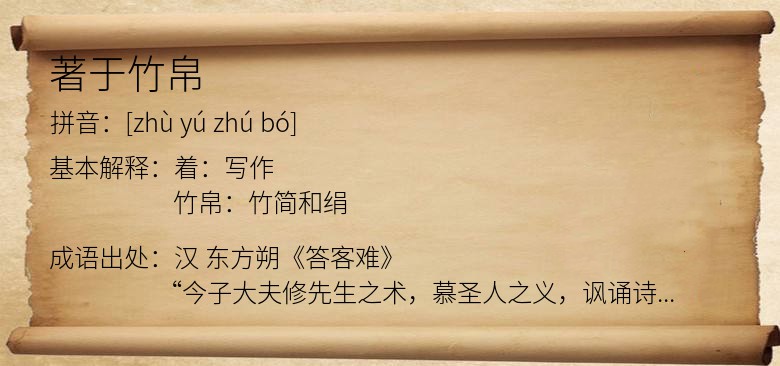 著于竹帛
拼音：[zhù yú zhú bó]
基本解释：着：写作
竹帛：竹简和绢
成语出处：汉 东方朔《答客难》
“今子大夫修先生之术，慕圣人之义，讽诵诗...